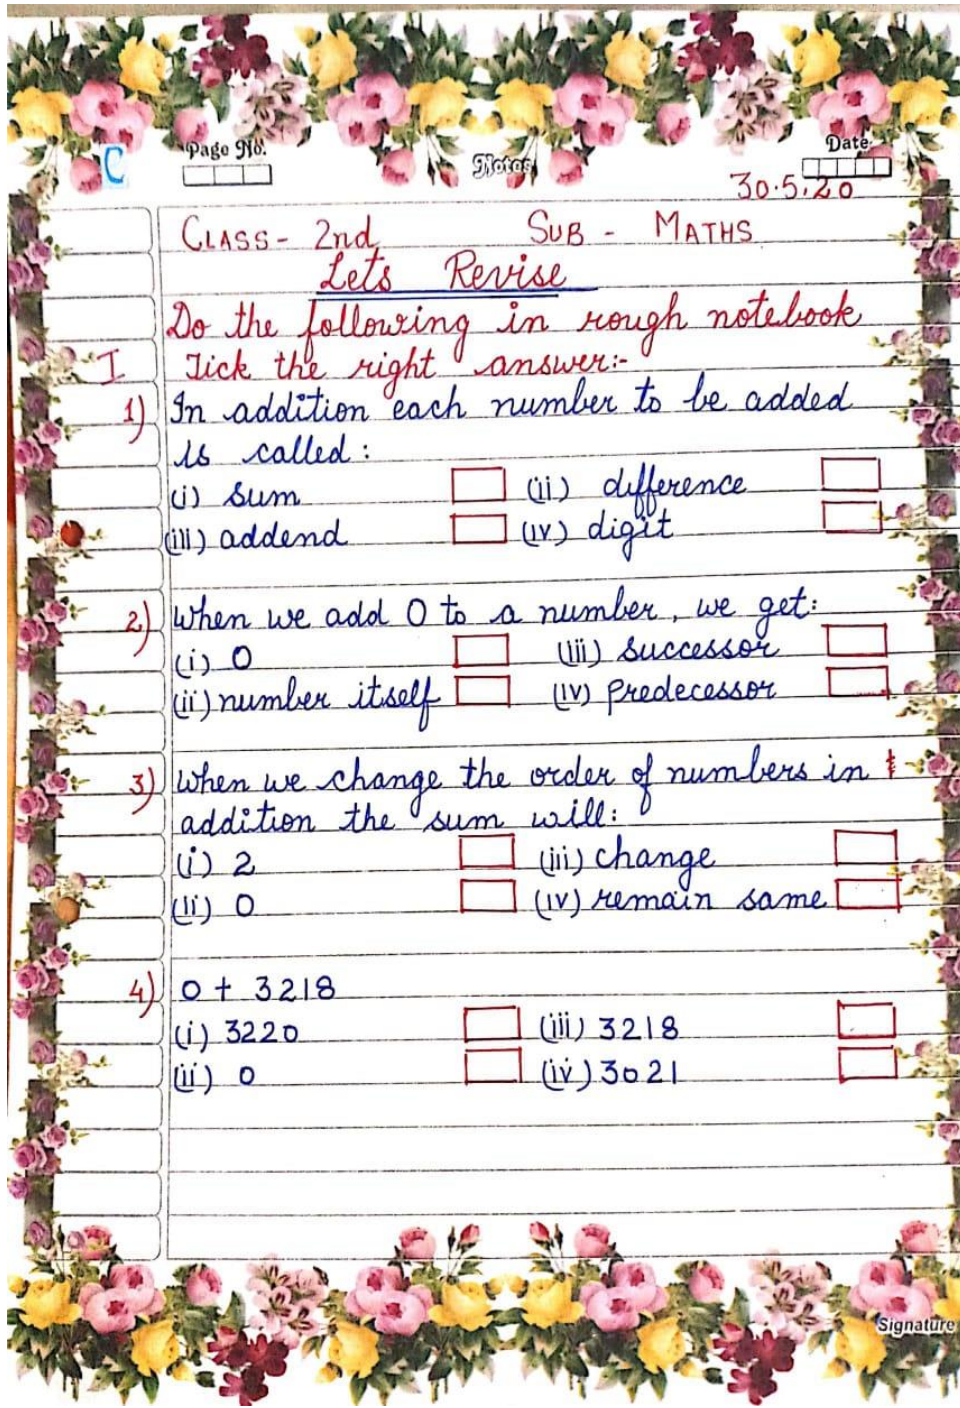 C
Page No.
Notes
Date
30.5.20
CLASS - 2nd SUB - MATHS
Lets Revise
Do the following in rough notebook
I Tick the right answer:-
1) In addition each number to be added
is called :
(i) sum (ii) difference
(iii) addend (iv) digit
2) When we add 0 to a number, we get:
(i) 0 (iii) successor
(ii) number itself (iv) predecessor
3) When we change the order of numbers in
addition the sum will:
(i) 2 (iii) change
(ii) 0 (iv) remain same
4) 0 + 3218
(i) 3220 (iii) 3218
(ii) 0 (iv) 3021
Signature